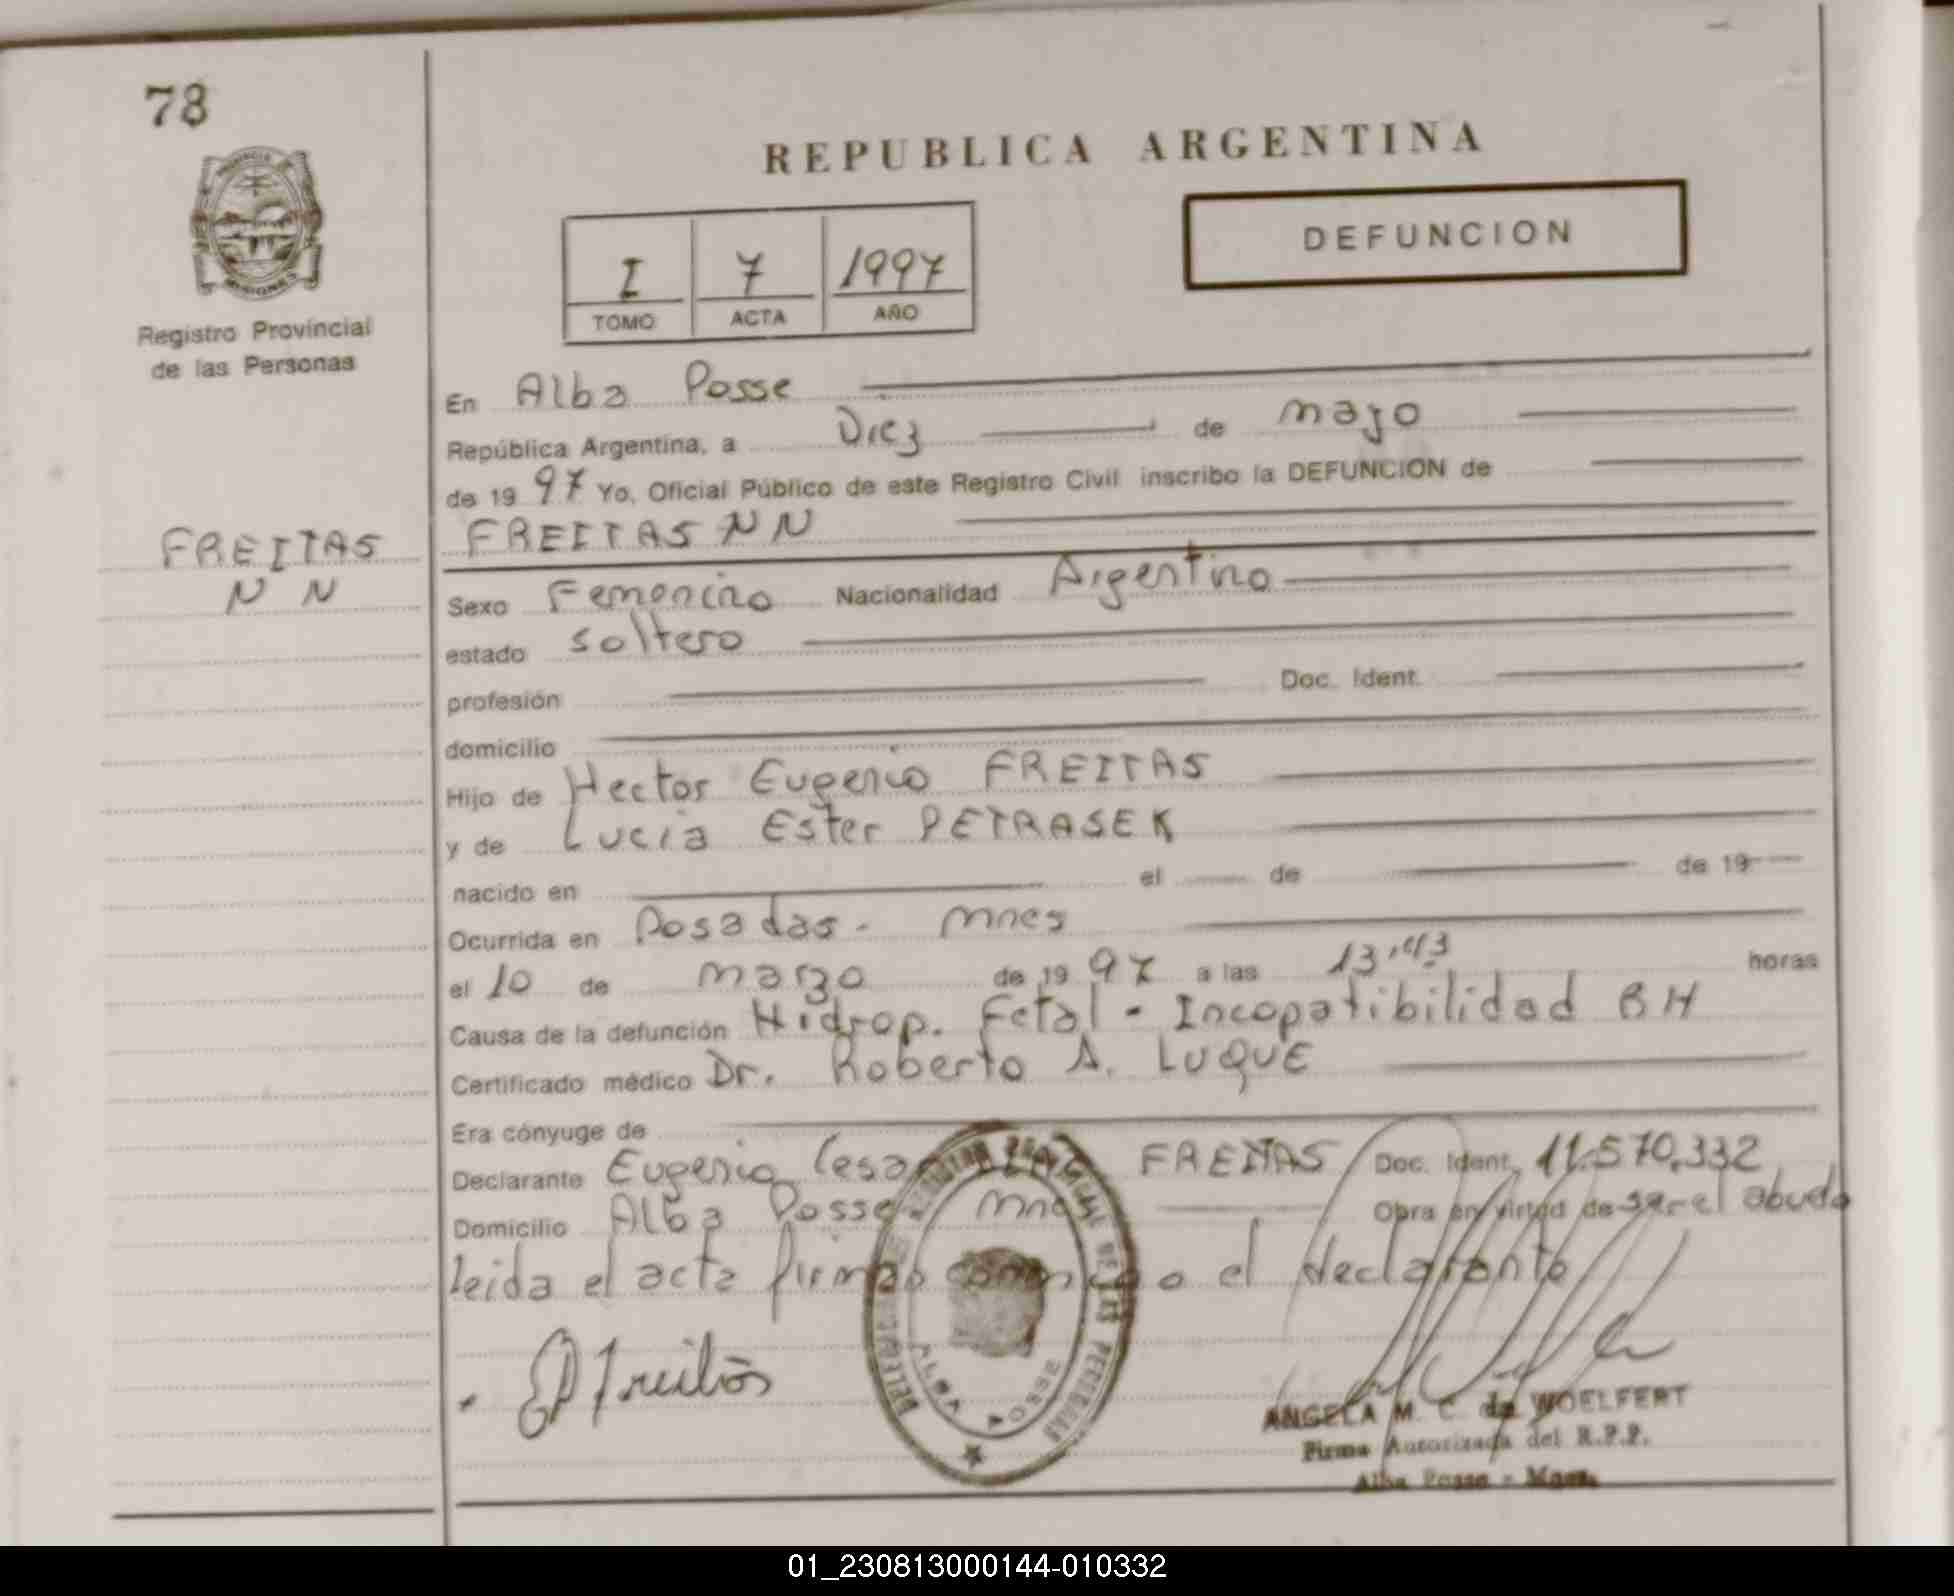 78
REPUBLICA ARGENTINA
DEFUNCION
I 7 1997
TOMO ACTA AÑO
PROVINCIA
MISIONES
Registro Provincial
de las Personas
En Alba Posse
República Argentina, a Diez de mayo
de 1997 Yo, Oficial Público de este Registro Civil inscribo la DEFUNCION de
FREITAS
N N
FREITAS NN
Sexo Femenino Nacionalidad Argentino
estado soltero
profesión Doc. Ident.
domicilio
Hijo de Hector Eugenio FREITAS
y de Lucia Ester PETRASEK
nacido en el de de 19
Ocurrida en Posadas - Mnes
el 10 de marzo de 1997 a las 13,43 horas
Causa de la defunción Hidrop. Fetal - Incopatibilidad RH
Certificado médico Dr. Roberto A. LUQUE
Era cónyuge de
Declarante Eugenio Cesar FREITAS Doc. Ident. 11.570.332
Domicilio Alba Posse Mnes Obra en virtud de ser el abuelo
leida el acta firman conmigo el declarante
DE LAS PERSONAS
ALBA POSSE
ANGELA M. C. de WOELFERT
Firma Autorizada del R.P.P.
Alba Posse - Mnes.
01_230813000144-010332